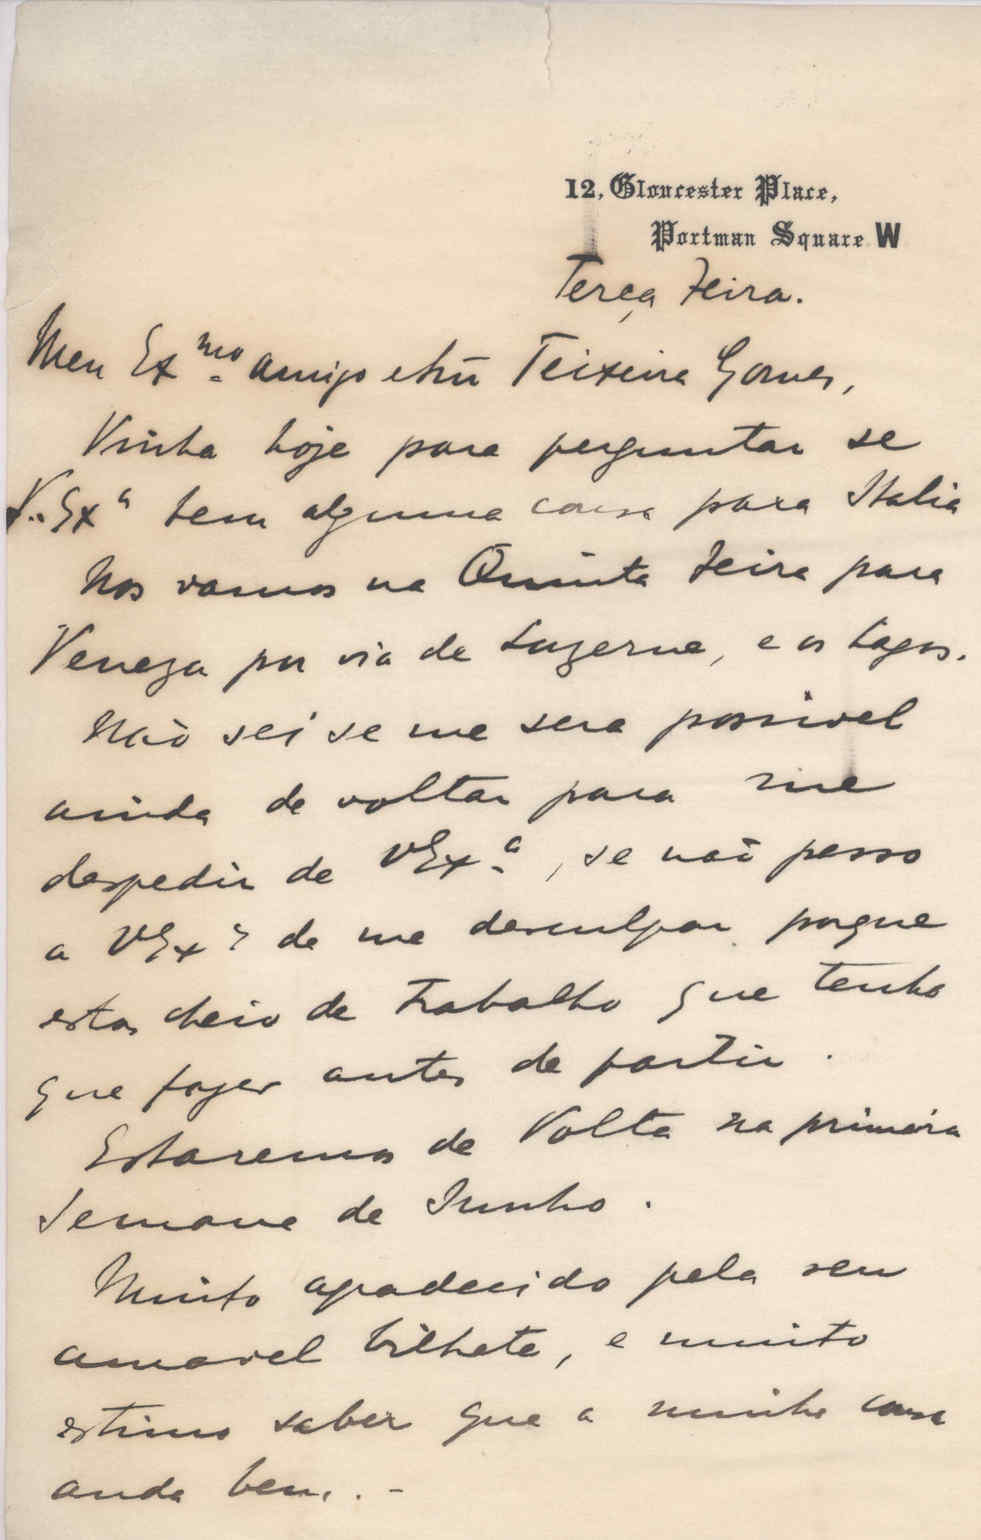 12, Gloucester Place,
Portman Square W
Terça Feira.
Meu Exmo. amigo e Teixeira Gomes,
Vinha hoje para perguntar se
V. Exa tem alguma cousa para Italia
Nos vamos na Quinta Feira para
Veneza por via de Luzerne, e os Lagos.
Não sei se me sera possivel
ainda de voltar para me
despedir de VExa, se não pesso
a VExa de me desculpar porque
estou cheio de Trabalho que tenho
que fazer antes de partir.
Estaremos de Volta na primeira
Semane de Junho.
Muito agradecido pela seu
amavel bilhete, e muito
estimo saber que a minha cousa
anda bem. -